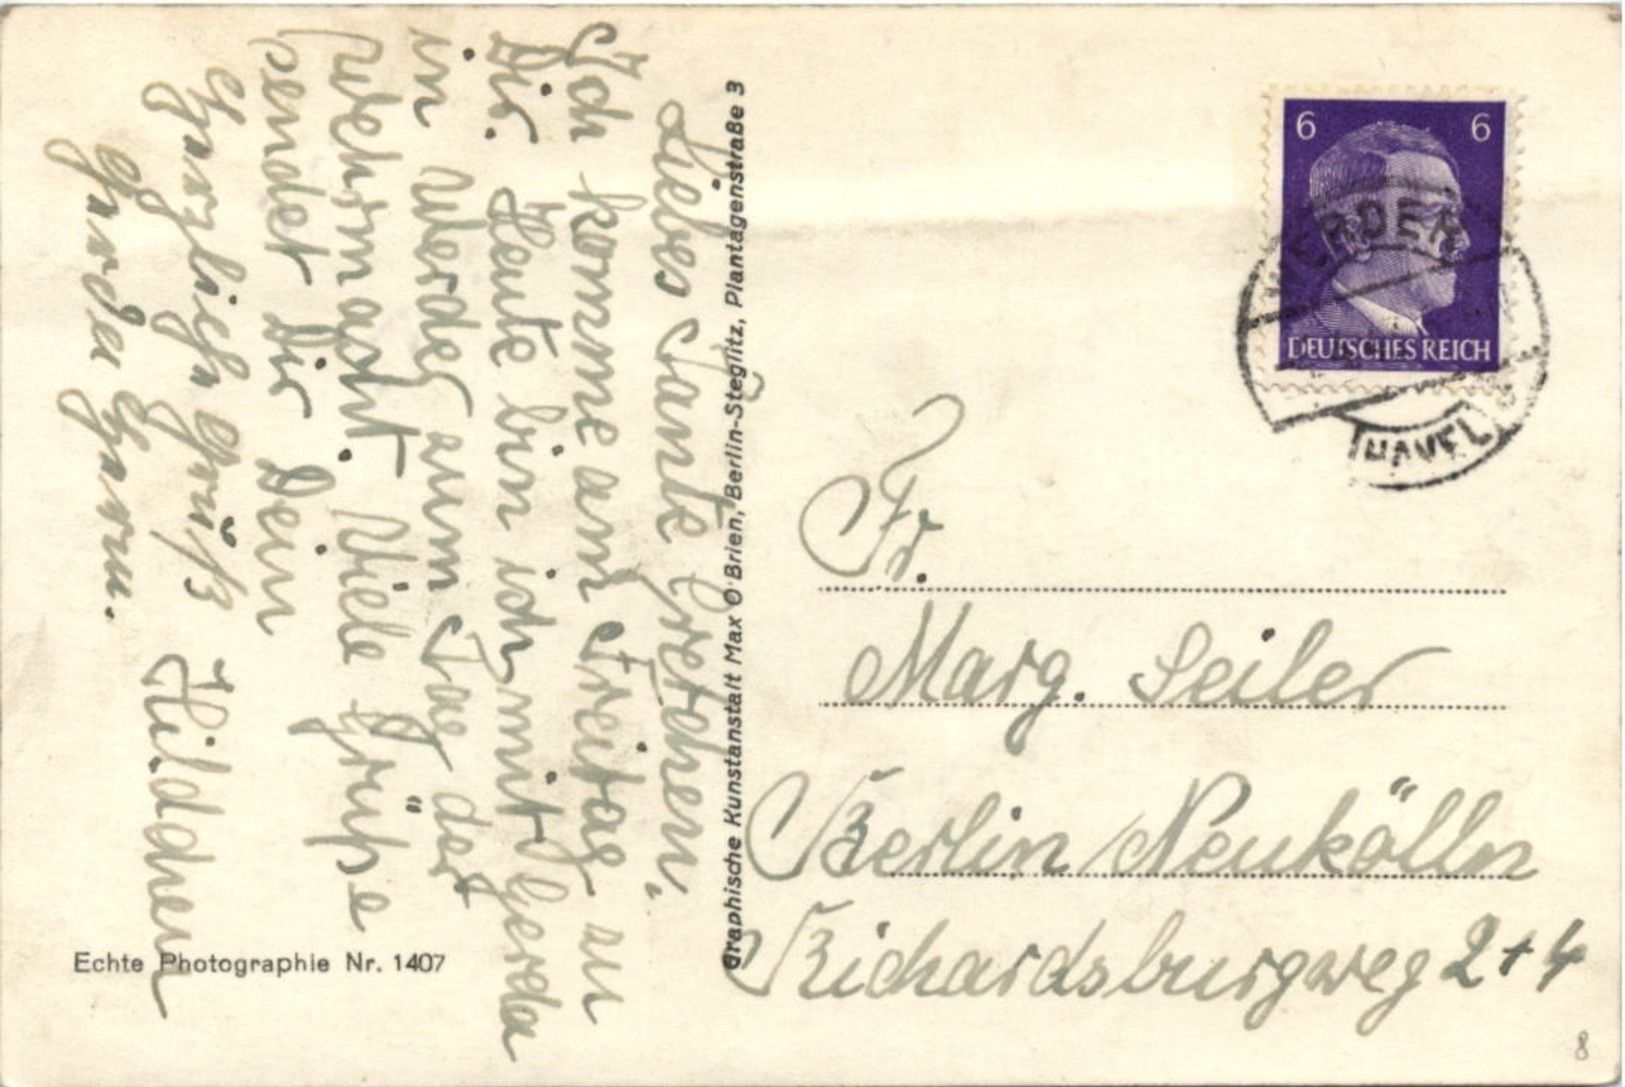 Liebes Tante Gretchen.
Ich komme am Freitag zu
Dir. Heute bin ich mit Gerda
in Werder zum Tag der
Wehrmacht. Viele Grüße
sendet Dir Dein
Hildchen
Herzlich Grüß
Gerda
Graphische Kunstanstalt Max O'Brien, Berlin-Steglitz, Plantagenstraße 3
6 6
DEUTSCHES REICH
WERDER
(HAVEL)
Fr.
Marg. Seiler
Berlin Neukölln
Richardsburgweg 2+4
Echte Photographie Nr. 1407
8